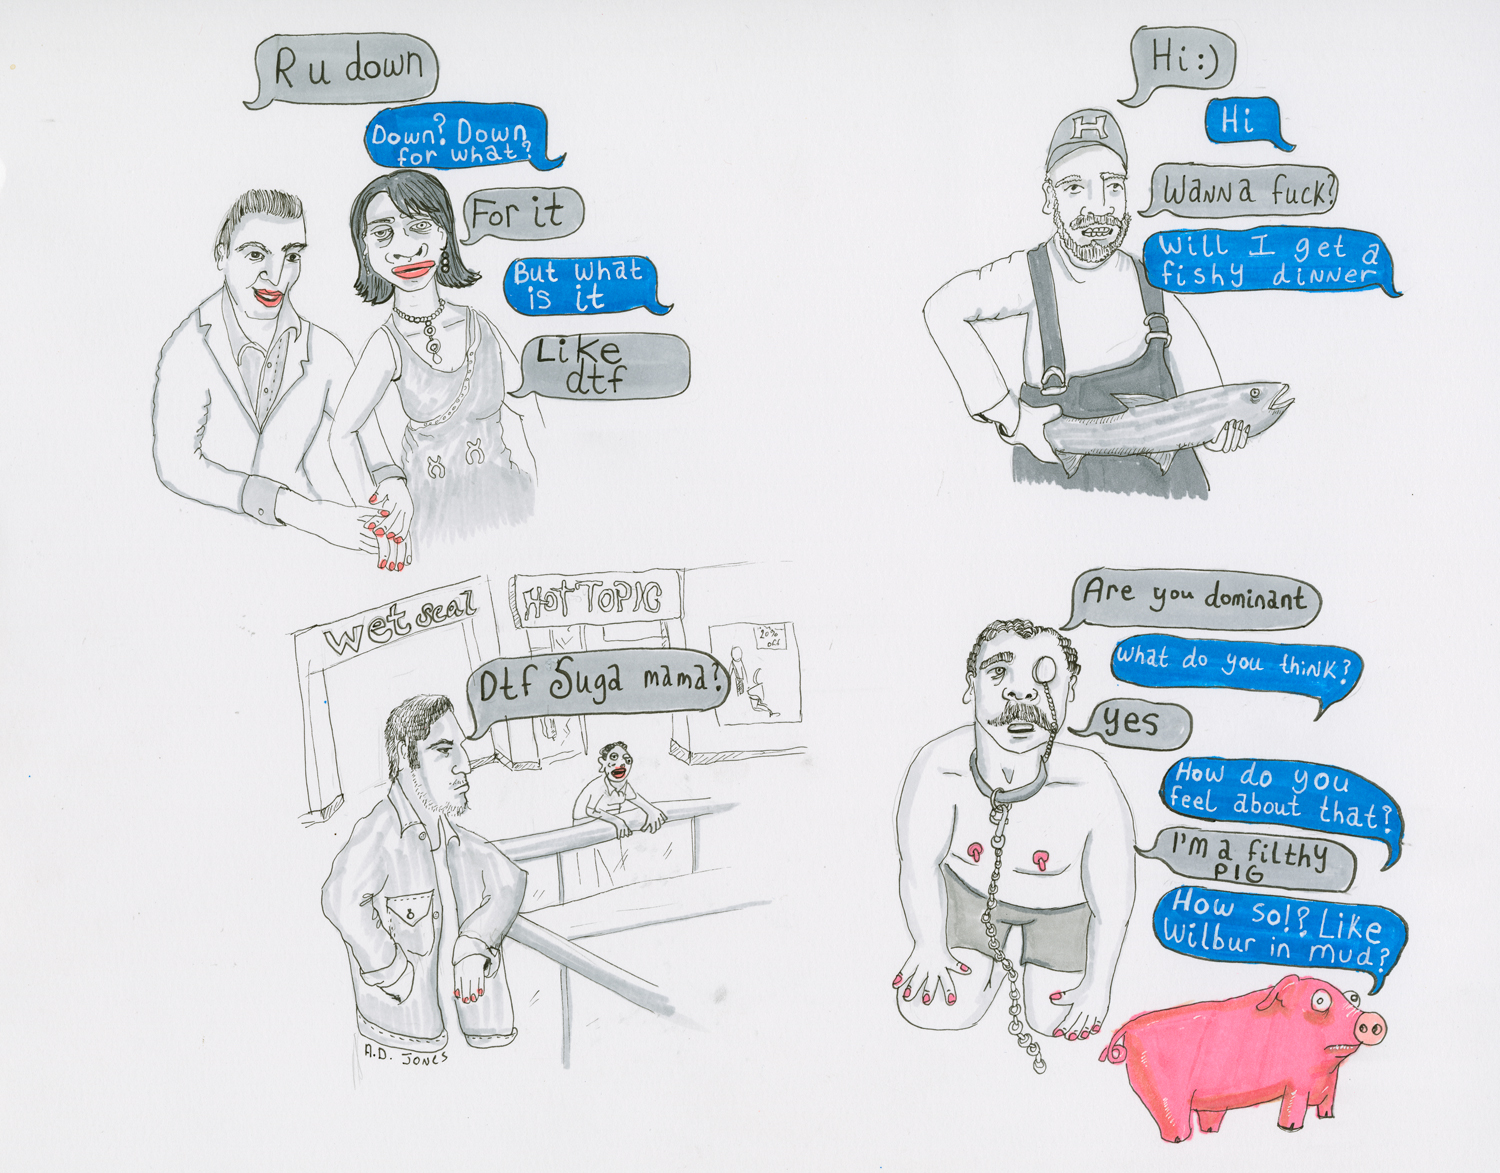 R u down
Down? Down
for what?
For it
But what
is it
Like
dtf
Hi :)
H
Hi
Wanna fuck?
Will I get a
fishy dinner
wet seal
HOT TOPIC
20%
off
Dtf Suga mama?
A.D. JONES
Are you dominant
What do you think?
yes
How do you
feel about that?
I'm a filthy
PIG
How so!? Like
Wilbur in mud?